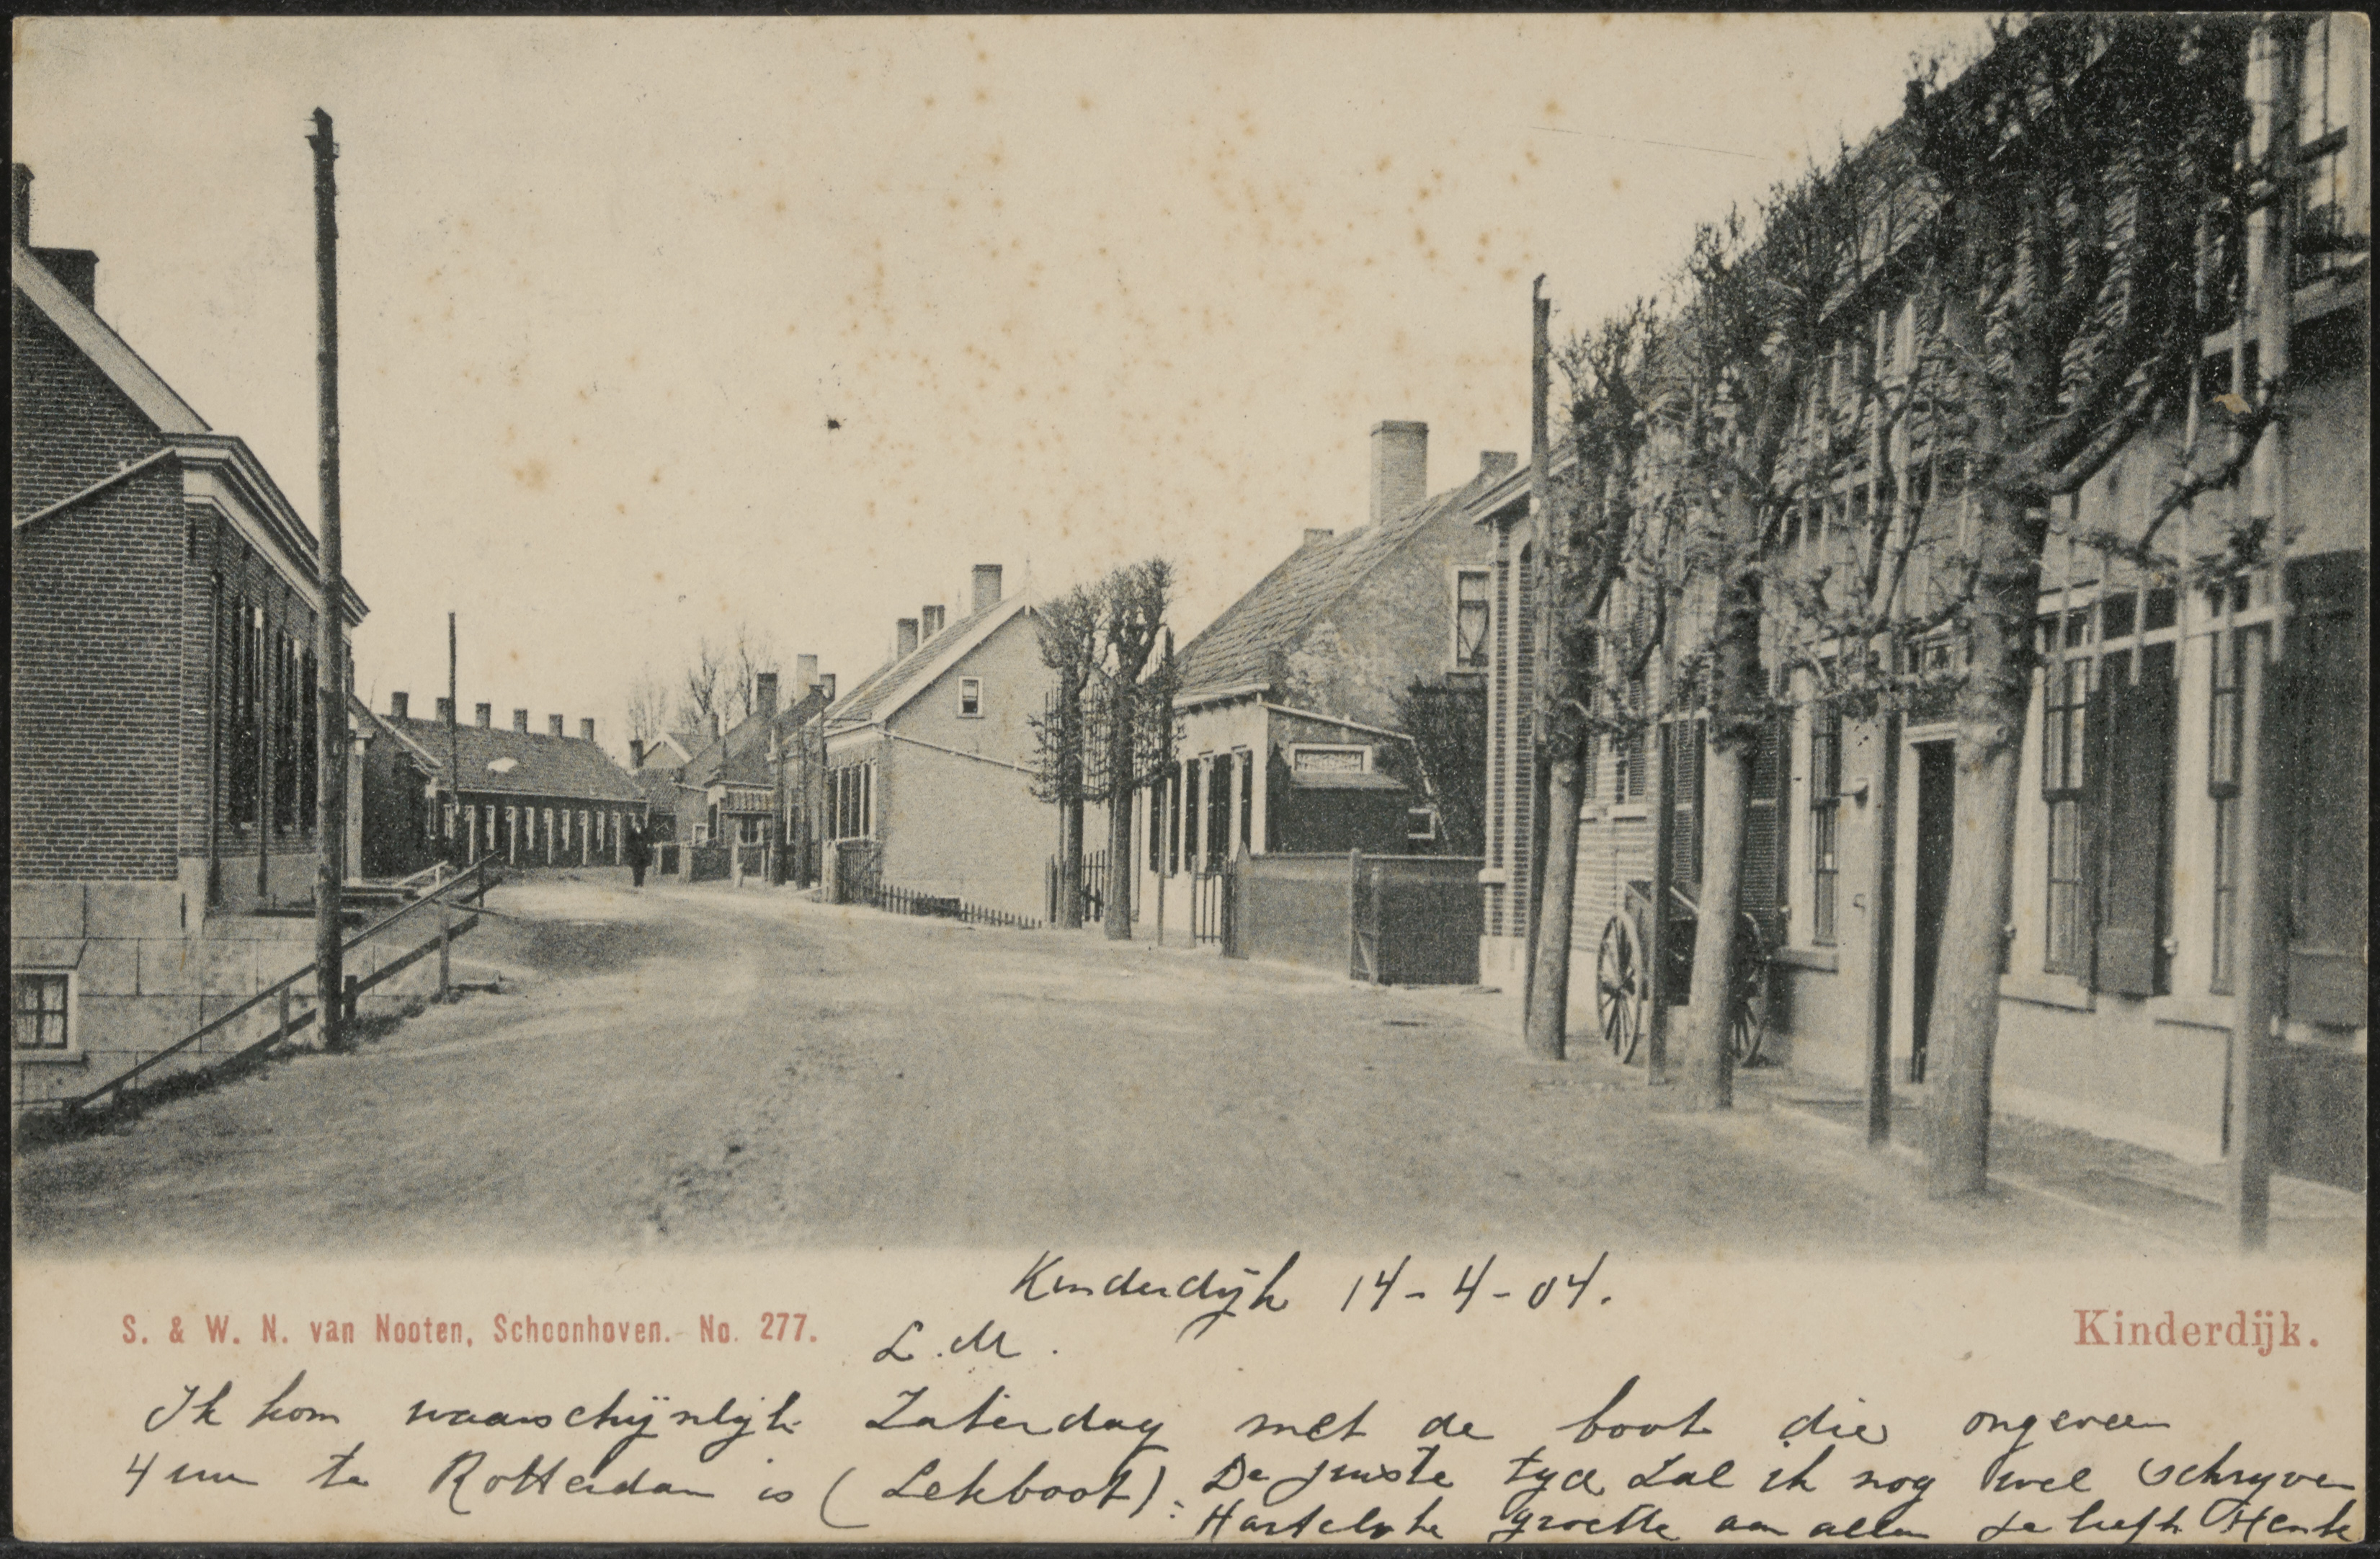 Kinderdijk 14-4-04.
S. & W. N. van Nooten, Schoonhoven. No. 277.
Kinderdijk.
L. M.
Ik kom waarschijnlijk Zaterdag met de boot die ongeveer
4 uur te Rotterdam is (Lekboot). De juiste tyd zal ik nog wel schryven
Hartelyke groeten aan allen Henk